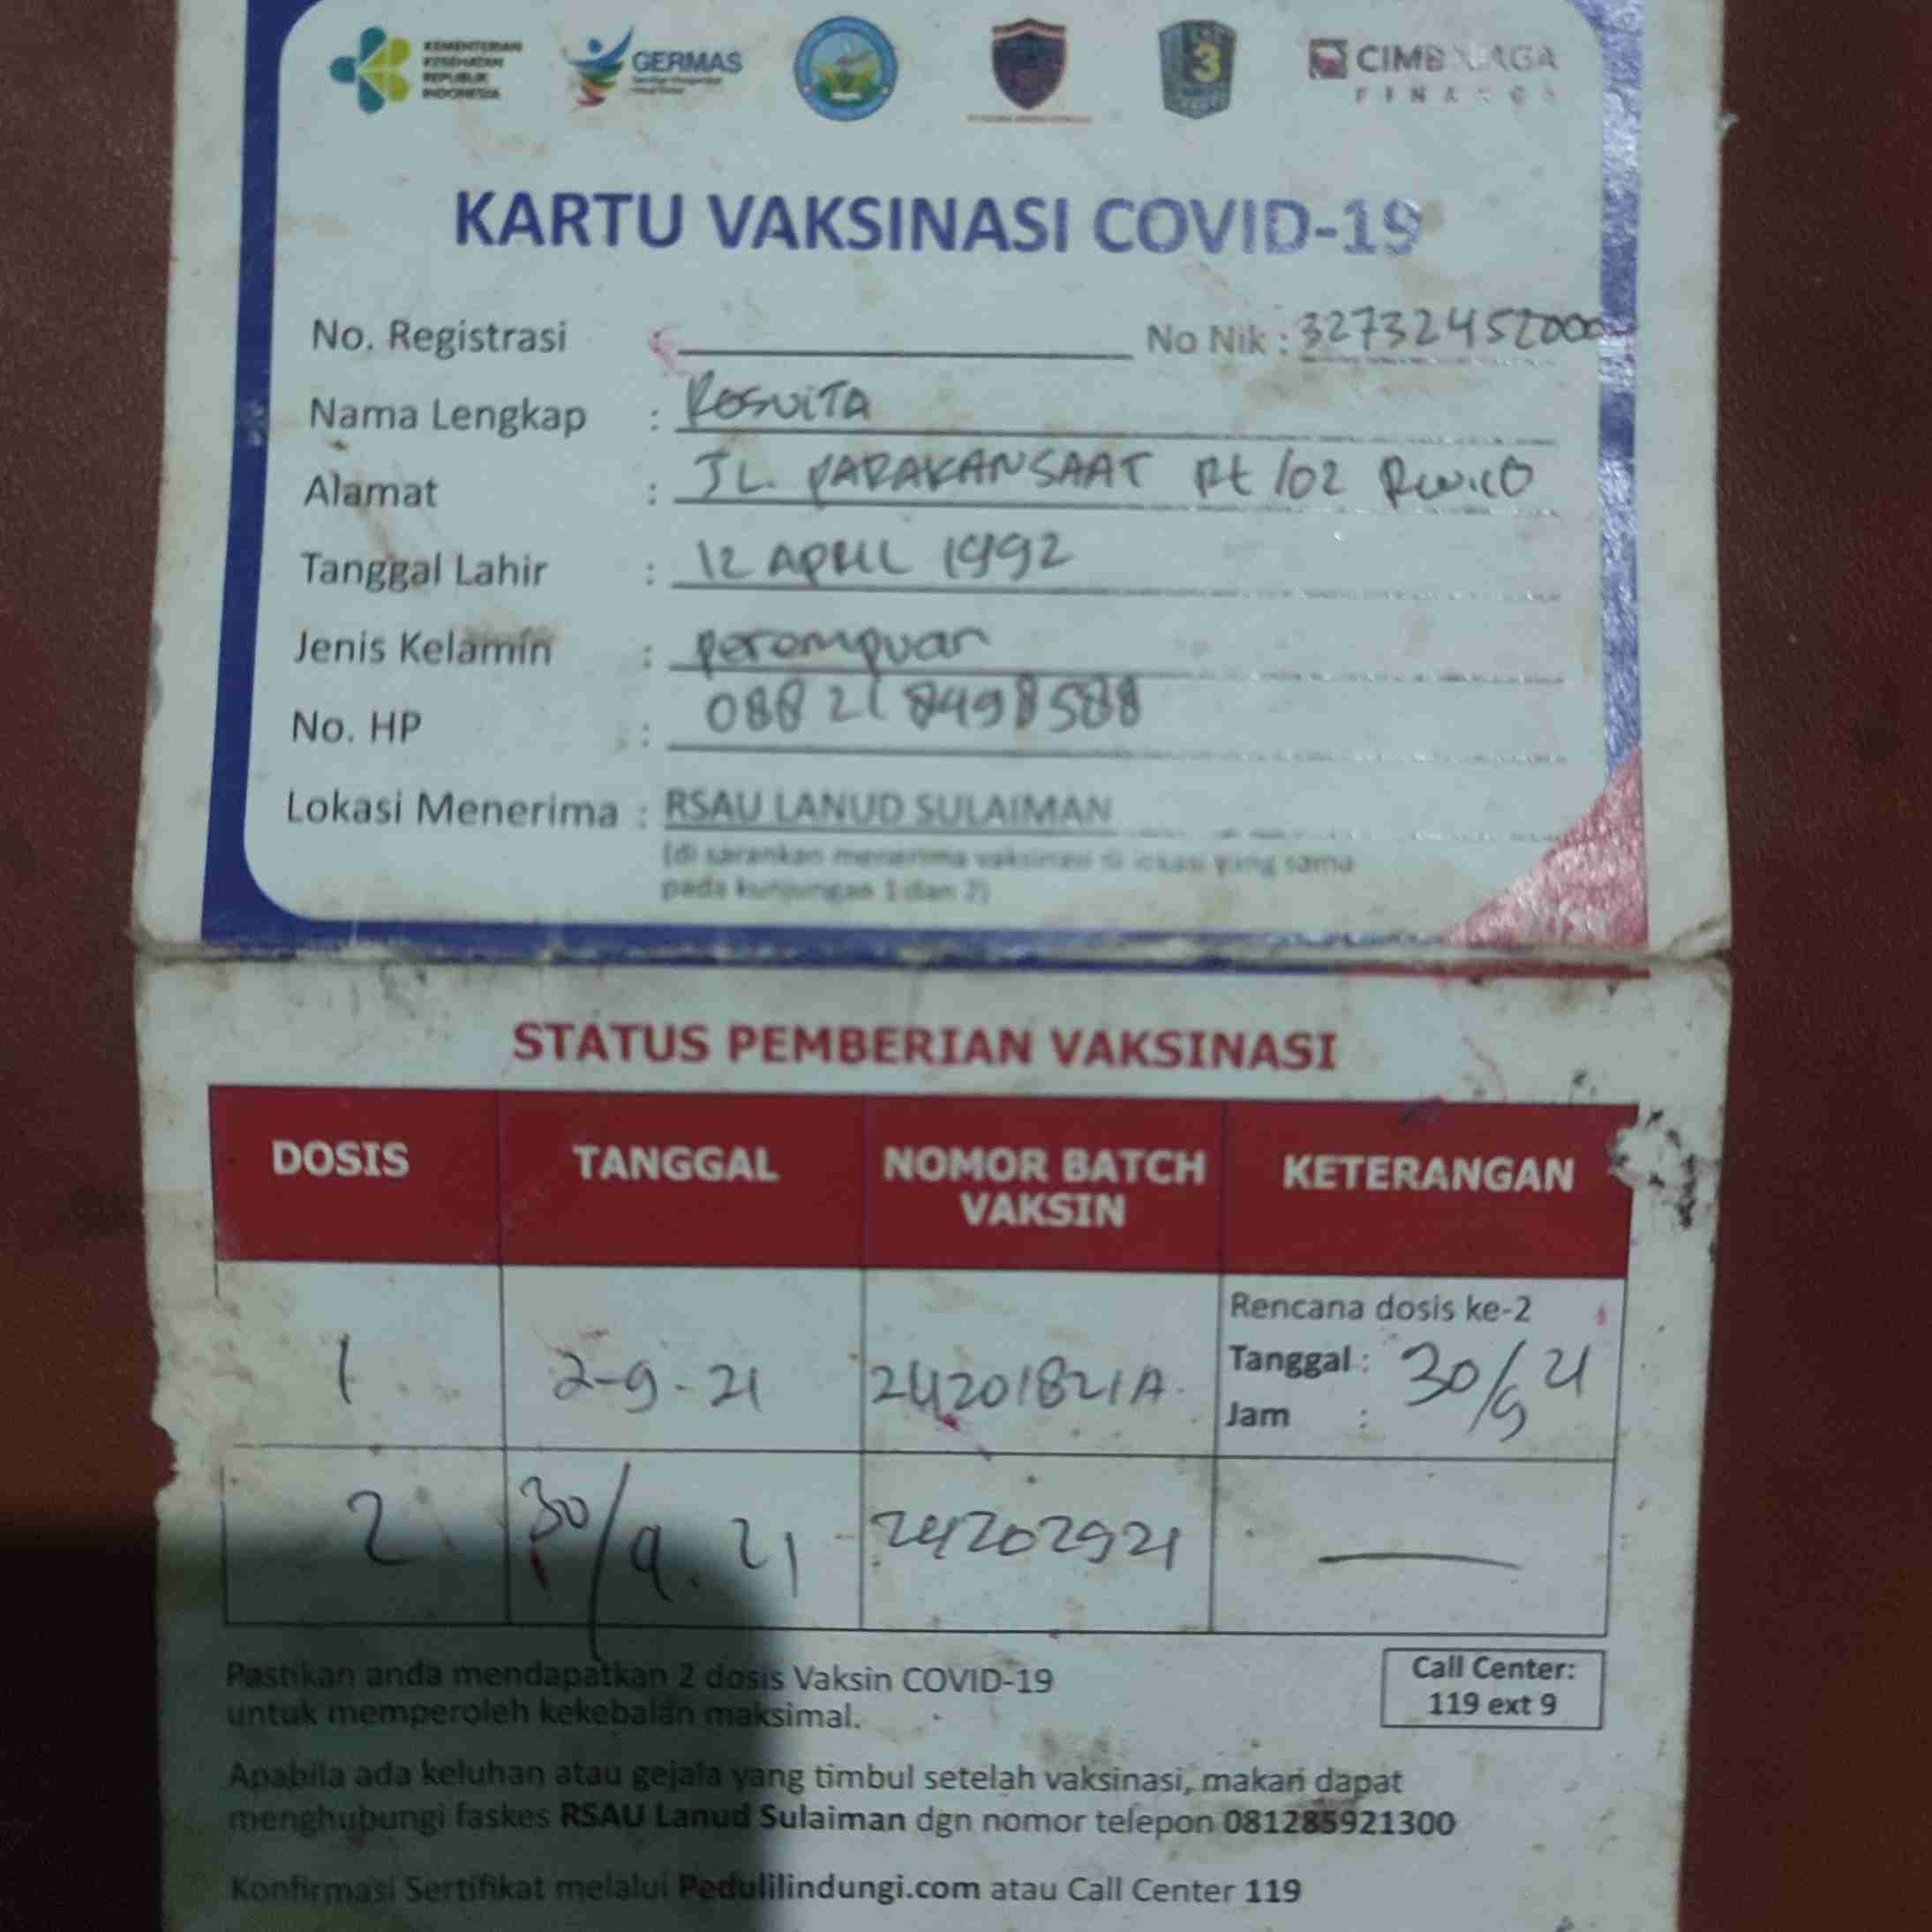 KEMENTERIAN
KESEHATAN
REPUBLIK
INDONESIA
GERMAS
3
CIMB NIAGA
FINANCE
KARTU VAKSINASI COVID-19
No. Registrasi : No Nik : 327324520000
Nama Lengkap : ROSVITA
Alamat : JL. PARAKANSAAT Rt/02 Rw.10
Tanggal Lahir : 12 APRIL 1992
Jenis Kelamin : perempuan
No. HP : 088218498588
Lokasi Menerima : RSAU LANUD SULAIMAN
(di sarankan menerima vaksinasi di lokasi yang sama
pada kunjungan 1 dan 2)
STATUS PEMBERIAN VAKSINASI
DOSIS TANGGAL NOMOR BATCH VAKSIN KETERANGAN
1 2-9-21 24201821A
Rencana dosis ke-2
Tanggal : 30/9 21
Jam :
2 30/9.21 24202921 —
Pastikan anda mendapatkan 2 dosis Vaksin COVID-19
untuk memperoleh kekebalan maksimal.
Call Center:
119 ext 9
Apabila ada keluhan atau gejala yang timbul setelah vaksinasi, makan dapat
menghubungi faskes RSAU Lanud Sulaiman dgn nomor telepon 081285921300
Konfirmasi Sertifikat melalui Pedulilindungi.com atau Call Center 119